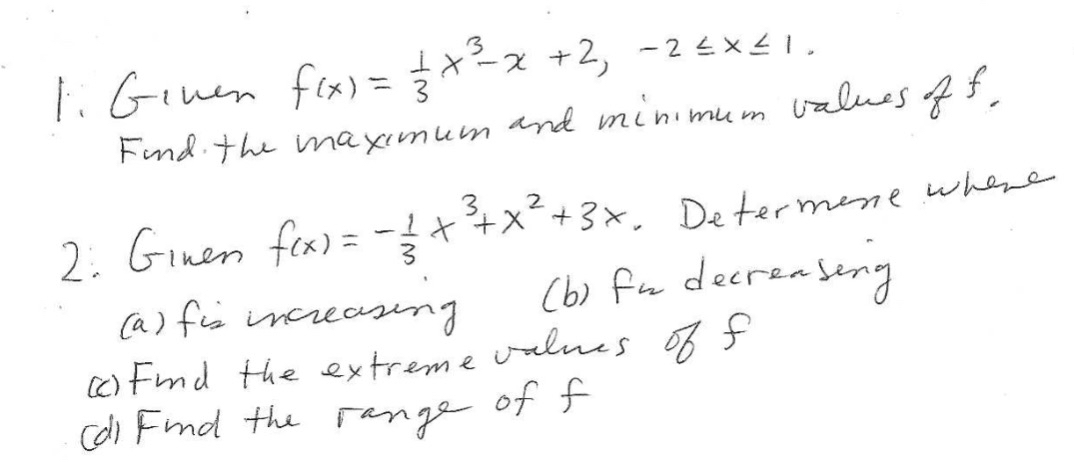 1. Given f(x) = 1/3 x³ - x + 2, -2 ≤ x ≤ 1.
Find the maximum and minimum values of f.
2. Given f(x) = -1/3 x³ + x² + 3x. Determine where
(a) f is increasing (b) f is decreasing
(c) Find the extreme values of f
(d) Find the range of f